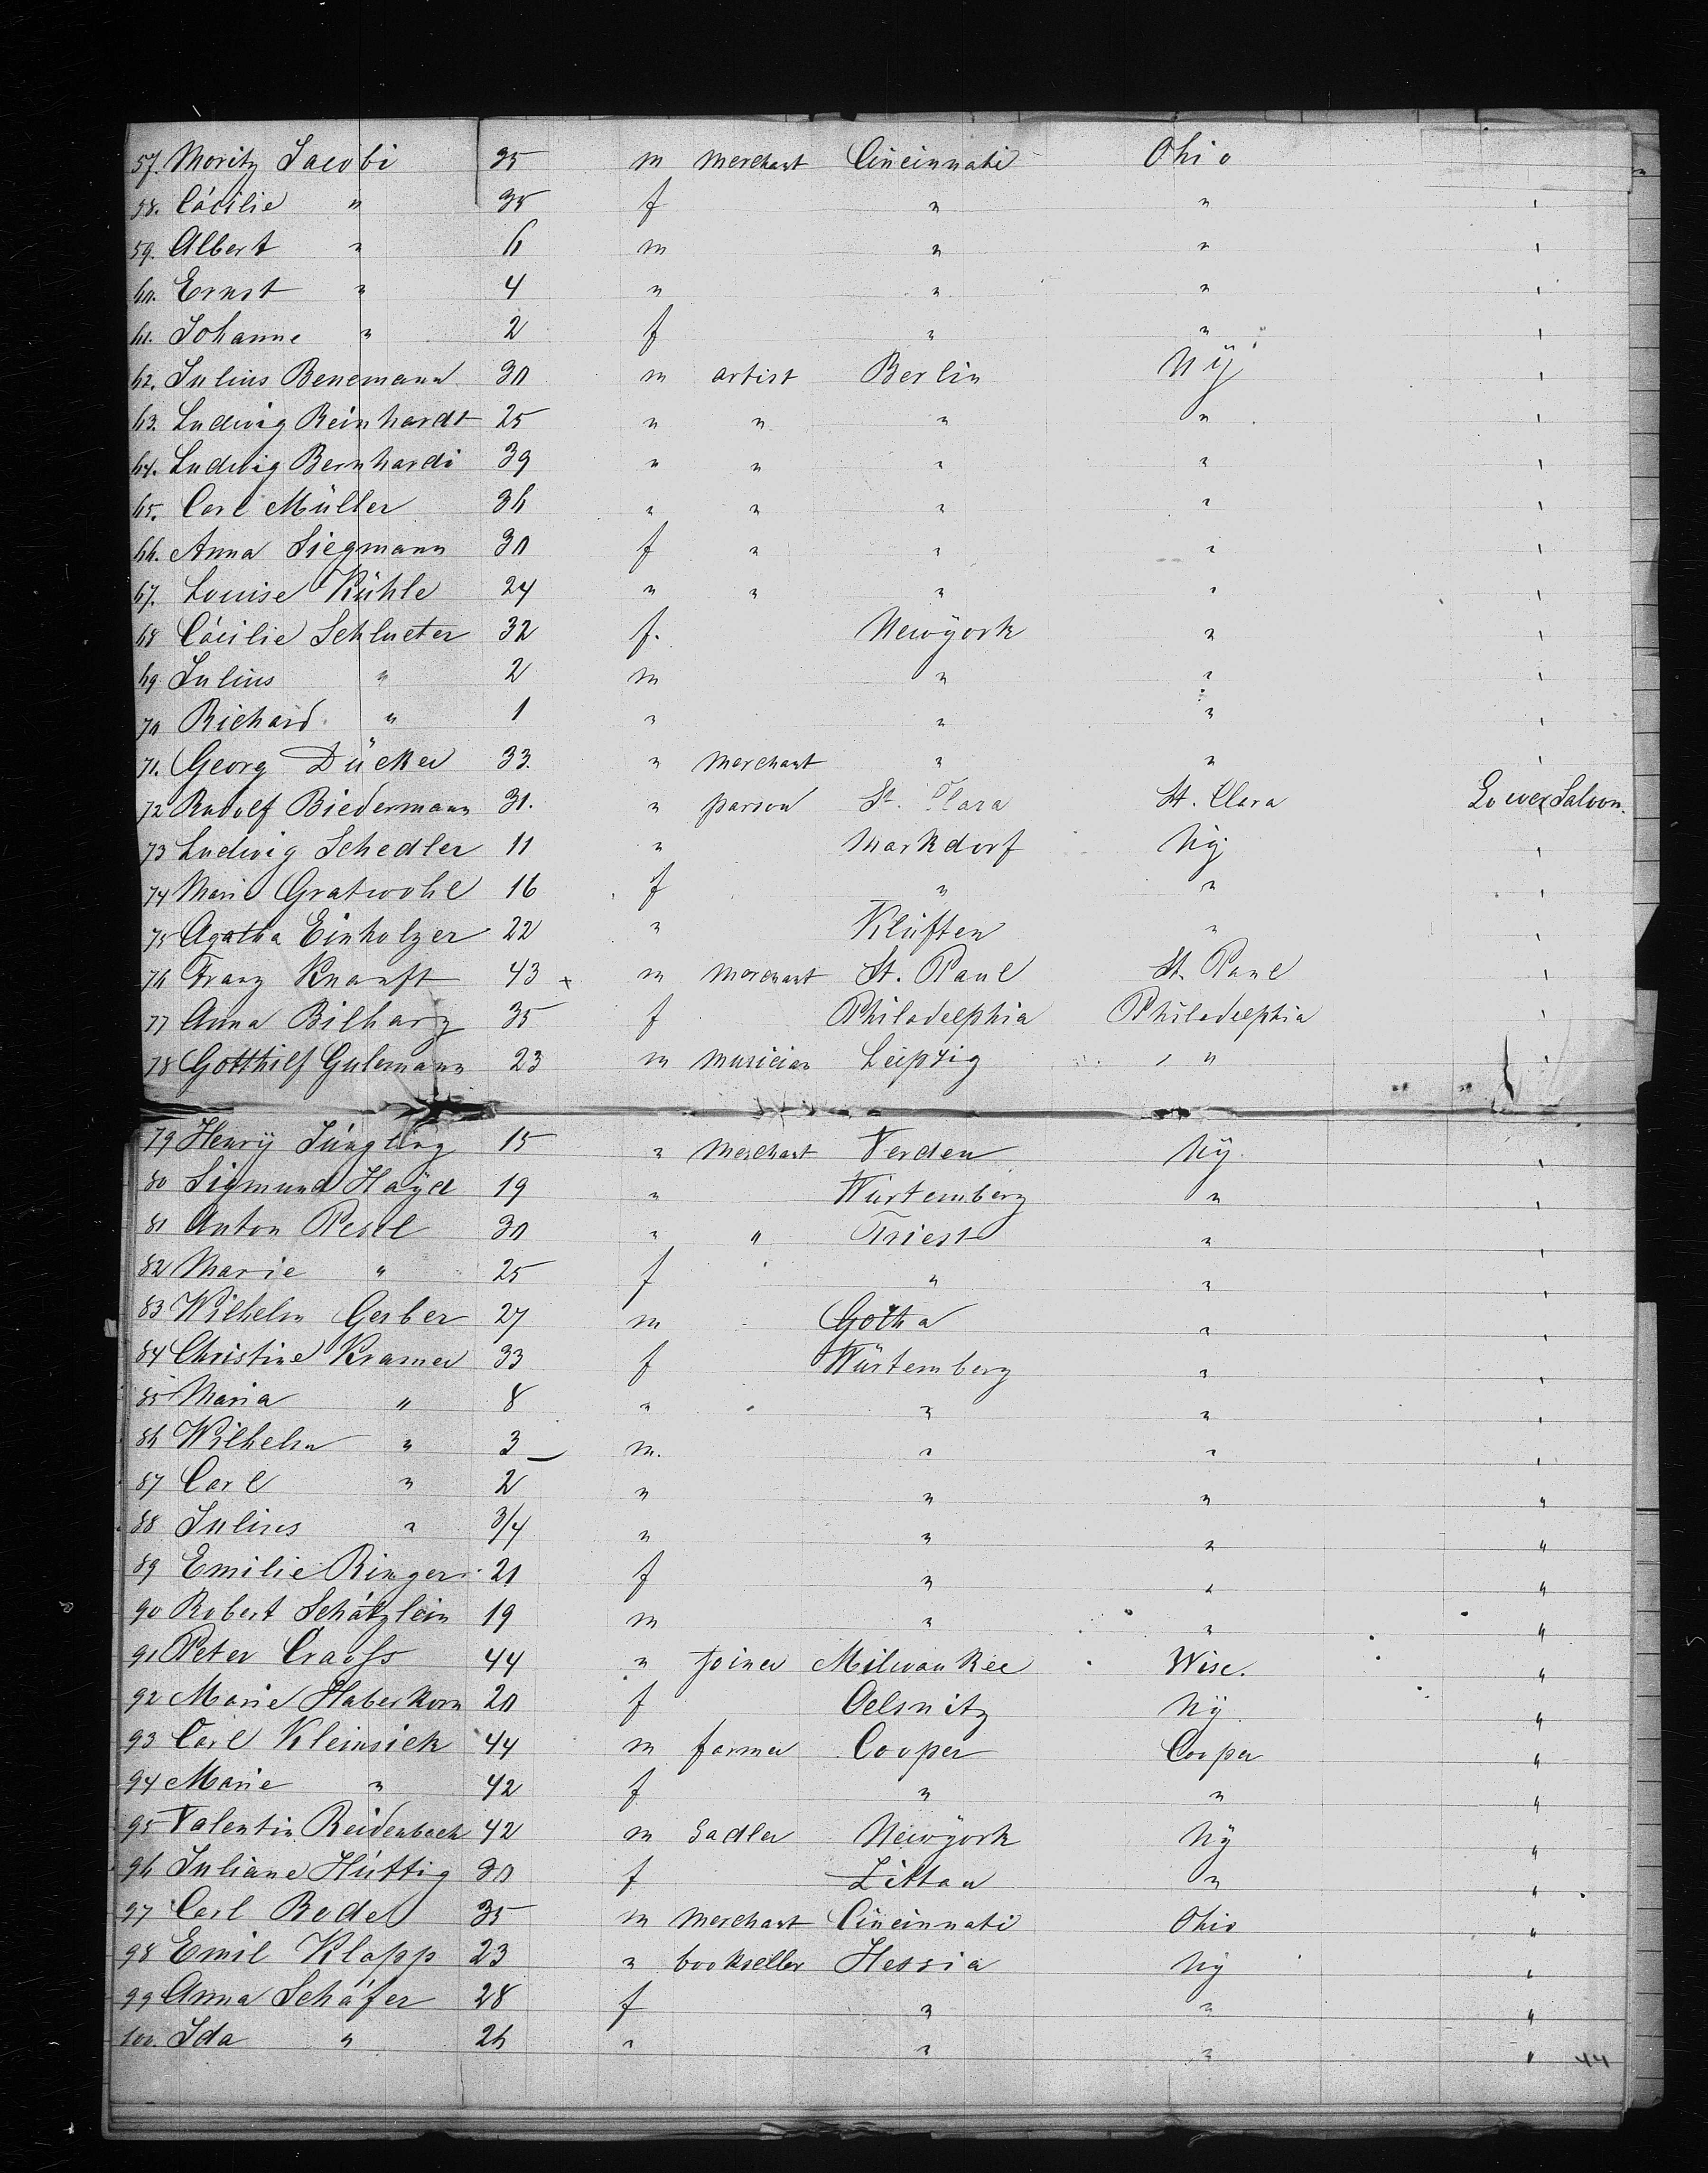 57. Moritz Jacobi 35 m merchant Cincinnati Ohio
58. Cácilie " 35 f " " "
59. Albert " 6 m " " "
60. Ernst " 4 " " " "
61. Johanne " 2 f " " "
62. Julius Benemann 30 m artist Berlin Ny "
63. Ludwig Reinhardt 25 " " " " "
64. Ludwig Bernhardi 39 " " " " "
65. Carl Müller 36 " " " " "
66. Anna Siegmann 30 f " " " "
67. Louise Kühle 24 " " " " "
68 Cácilie Schlueter 32 f. Newÿork " "
69 Julius " 2 m " " "
70 Richard " 1 " " " "
71. Georg Dücker 33. " merchant " " "
72 Rudolf Biedermann 31. " parson St. Clara St. Clara Lower Saloon.
73 Ludwig Schedler 11 " Markdorf Nÿ "
74 Marie Gratwohl 16 f " " "
75 Agatha Einholzer 22 " Klüften " "
76 Franz Knauft 43 x m merchant St. Paul St. Paul "
77 Anna Bilharz 35 f Philadelphia Philadelphia "
78 Gotthilf Gulemann 23 m musician Leipzig " "
79 Henrÿ Júngling 15 " merchant Verden Nÿ "
80 Sigmund Haÿd 19 " Würtemberg " "
81 Anton Pesel 30 " " Triest " "
82 Marie " 25 f " " "
83 Wilhelm Gerber 27 m Gotha " "
84 Christine Kramer 33 f Würtemberg " "
85 Maria " 8 " " " "
86 Wilhelm " 3 m. " " "
87 Carl " 2 " " " "
88 Julius " 3/4 " " " "
89 Emilie Ringer 21 f " " "
90 Robert Schátzlein 19 m " " "
91 Peter Crauss 44 " Joiner Milwaukee Wisc. "
92 Marie Haberkorn 20 f Oelsnitz Nÿ "
93 Carl Kleinsick 44 m farmer Cooper Cooper "
94 Marie " 42 f " " "
95 Valentin Reidenbach 42 m Sadler Newÿork Nÿ "
96 Juliane Húttig 30 f Zittau " "
97 Carl Bode 35 m merchant Cincinnati Ohio "
98 Emil Klapp 23 " bookseller Hessia Ny "
99 Anna Scháfer 28 f " " "
100. Ida " 26 " " " "
44